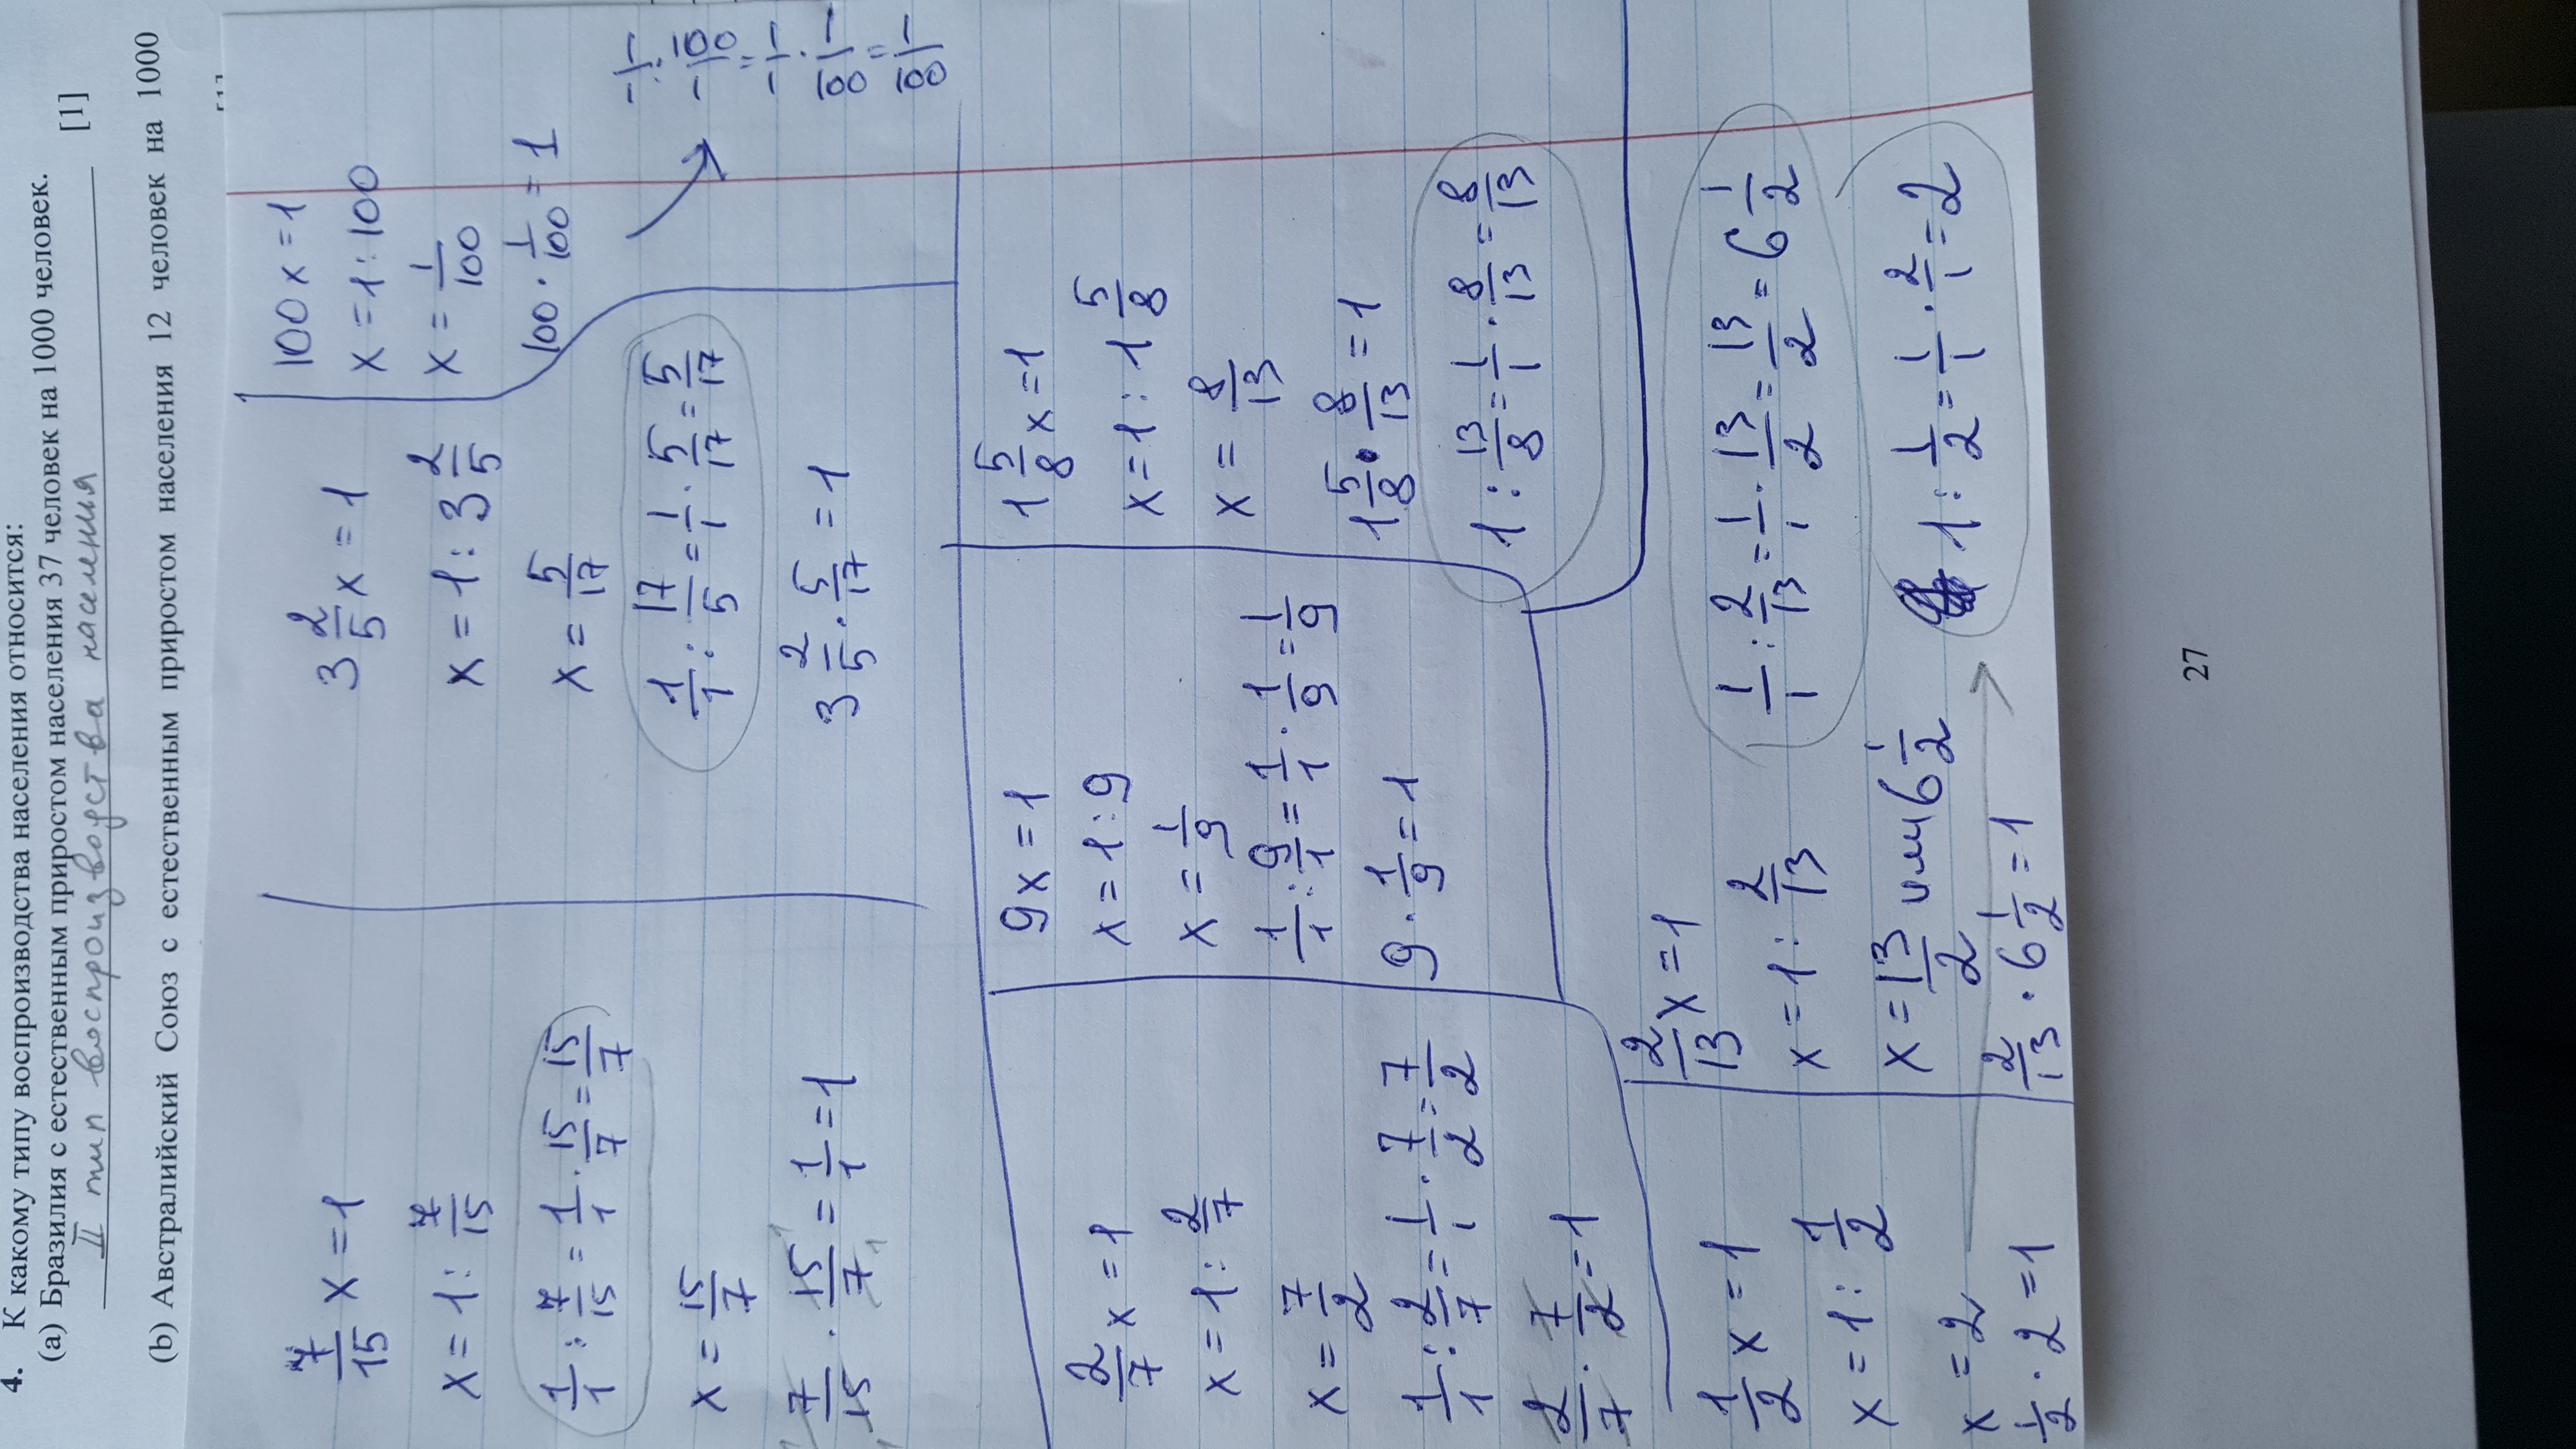 4. К какому типу воспроизводства населения относится:
(a) Бразилия с естественным приростом населения 37 человек на 1000 человек.
II тип воспроизводства населения [1]
(b) Австралийский Союз с естественным приростом населения 12 человек на 1000
7/15 x = 1
x = 1 : 7/15
1/1 : 7/15 = 1/1 · 15/7 = 15/7
x = 15/7
7/15 · 15/7 = 1/1 = 1
3 2/5 x = 1
x = 1 : 3 2/5
x = 5/17
1/1 : 17/5 = 1/1 · 5/17 = 5/17
3 2/5 · 5/17 = 1
100x = 1
x = 1 : 100
x = 1/100
100 · 1/100 = 1
1/1 : 100/1 = 1/1 · 1/100 = 1/100
2/7 x = 1
x = 1 : 2/7
x = 7/2
1/1 : 2/7 = 1/1 · 7/2 = 7/2
2/7 · 7/2 = 1
9x = 1
x = 1 : 9
x = 1/9
1/1 : 9/1 = 1/1 · 1/9 = 1/9
9 · 1/9 = 1
1 5/8 x = 1
x = 1 : 1 5/8
x = 8/13
1 5/8 · 8/13 = 1
1 : 13/8 = 1/1 · 8/13 = 8/13
1/2 x = 1
x = 1 : 1/2
x = 2
1/2 · 2 = 1
2/13 x = 1
x = 1 : 2/13
x = 13/2 или 6 1/2
2/13 · 6 1/2 = 1
1/1 : 2/13 = 1/1 · 13/2 = 13/2 = 6 1/2
1 : 1/2 = 1/1 · 2/1 = 2
27